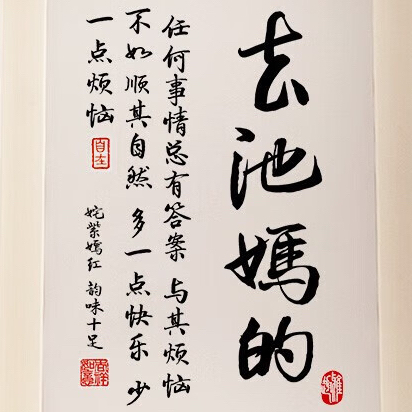 去池媽的
任何事情总有答案 与其烦恼
不如顺其自然 多一点快乐 少
一点烦恼
自在
姹紫嫣红 韵味十足